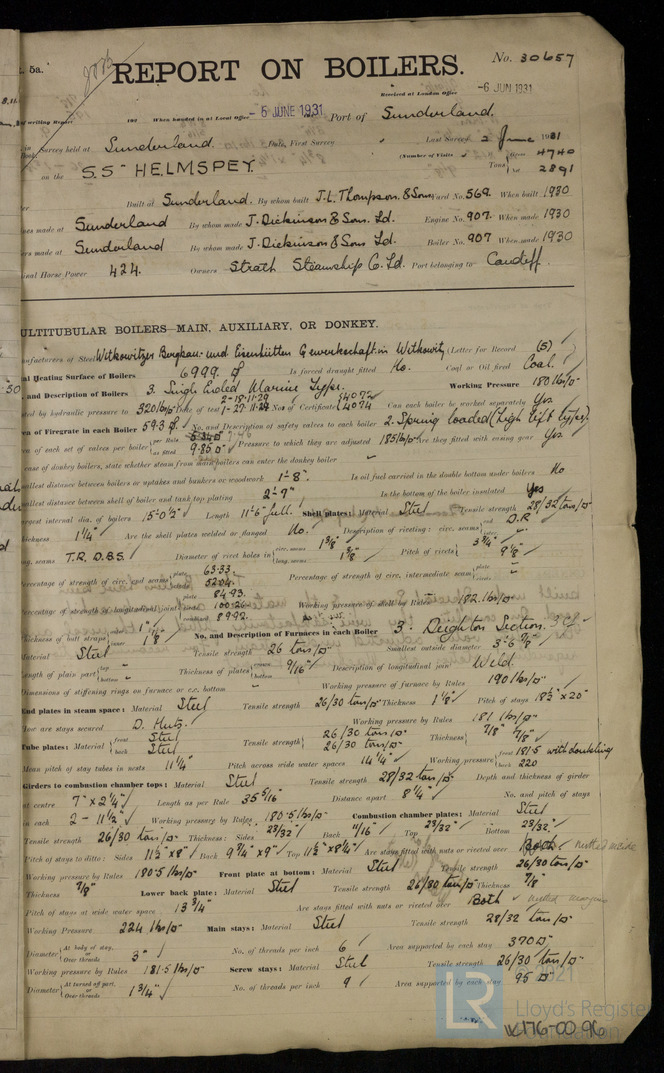 5a.
No. 30657
REPORT ON BOILERS.
Received at London Office -6 JUN 1931
of writing Report 192 When handed in at Local Office -5 JUNE 1931 Port of Sunderland.
Survey held at Sunderland. Date, First Survey Last Survey 2 June 1931
on the S.S. HELMSPEY. (Number of Visits Gross 4740
Tons Net 2891
Built at Sunderland. By whom built J.L. Thompson & Sons Yard No. 569. When built 1930
made at Sunderland By whom made J. Dickinson & Sons. Ld. Engine No. 907. When made 1930
made at Sunderland By whom made J. Dickinson & Sons Ld. Boiler No. 907 When made 1930
Horse Power 424. Owners Strath Steamship Co. Ld. Port belonging to Cardiff.
MULTITUBULAR BOILERS—MAIN, AUXILIARY, OR DONKEY.
Manufacturers of Steel Witkowitzer Bergbau- und Eisenhütten Gewerkschaft in Witkowitz (Letter for Record (S)
Heating Surface of Boilers 6999. Is forced draught fitted No. Coal or Oil fired Coal.
and Description of Boilers 3. Single Ended Marine Type. Working Pressure 180 lbs/□"
by hydraulic pressure to 320 lbs/□" Date of test 2-18-11-29 1-27-11-29 No. of Certificate 4072 4074 Can each boiler be worked separately Yes
Area of Firegrate in each Boiler 59.3 No. and Description of safety valves to each boiler 2. Spring loaded (high lift type).
of each set of valves per boiler per Rule as fitted 9.85 □" Pressure to which they are adjusted 185 lb/□" Are they fitted with easing gear Yes
case of donkey boilers, state whether steam from main boilers can enter the donkey boiler
Smallest distance between boilers or uptakes and bunkers or woodwork 1'-8" Is oil fuel carried in the double bottom under boilers No
Smallest distance between shell of boiler and tank top plating 2'-9" Is the bottom of the boiler insulated Yes
Largest internal dia. of boilers 15'-0½" Length 11'-6" full. Shell plates: Material Steel Tensile strength 28/32 tons/□"
Thickness 1¼" Are the shell plates welded or flanged No. Description of riveting: circ. seams end D.R
long. seams T.R. D.B.S. Diameter of rivet holes in circ. seams 1⅜" long. seams 1⅜" Pitch of rivets 3¾" 9⅛"
Percentage of strength of circ. end seams plate 63.33. rivets 52.04. Percentage of strength of circ. intermediate seam plate rivets
Percentage of strength of longitudinal joint plate 84.93. rivets 100.26 combined 89.92. Working pressure of shell by Rules 182. lbs/□"
Thickness of butt straps outer 1" inner 1⅛" No. and Description of Furnaces in each Boiler 3. Deighton Section.
Material Steel Tensile strength 26 tons/□" Smallest outside diameter 3'-6⅞"
Length of plain part top bottom Thickness of plates 9/16" Description of longitudinal joint Weld.
Dimensions of stiffening rings on furnace or c.c. bottom Working pressure of furnace by Rules 190 lbs/□"
End plates in steam space: Material Steel Tensile strength 26/30 tons/□" Thickness 1⅛" Pitch of stays 18½" x 20"
How are stays secured D. Nuts. Working pressure by Rules 181 lbs/□"
Tube plates: Material front Steel back Steel Tensile strength 26/30 tons/□" 26/30 tons/□" Thickness ⅞" ⅞"
Mean pitch of stay tubes in nests 11¼" Pitch across wide water spaces 14¼" Working pressure front 181.5 with doubling back 220
Girders to combustion chamber tops: Material Steel Tensile strength 28/32 tons/□" Depth and thickness of girder
at centre 7" x 2¼" Length as per Rule 35 5/16" Distance apart 8¼" No. and pitch of stays
in each 2 - 11½" Working pressure by Rules 180.5 lbs/□" Combustion chamber plates: Material Steel
Tensile strength 26/30 tons/□" Thickness: Sides 23/32" Back 11/16" Top 23/32" Bottom 23/32"
Pitch of stays to ditto: Sides 11½" x 8" Back 9¾" x 9" Top 11½" x 8¼" Are stays fitted with nuts or riveted over Both
Working pressure by Rules 180.5 lbs/□" Front plate at bottom: Material Steel Tensile strength 26/30 tons/□"
Thickness ⅞" Lower back plate: Material Steel Tensile strength 26/30 tons/□" Thickness ⅞"
Pitch of stays at wide water space 13¾" Are stays fitted with nuts or riveted over Both
Working Pressure 224 lbs/□" Main stays: Material Steel Tensile strength 28/32 tons/□"
Diameter At body of stay, or Over threads 3" No. of threads per inch 6 Area supported by each stay 370 □"
Working pressure by Rules 181.5 lbs/□" Screw stays: Material Steel Tensile strength 26/30 tons/□"
Diameter At turned off part, or Over threads 1¾" No. of threads per inch 9 Area supported by each stay 95 □"
2021
LR Lloyd's Register Foundation
W176-0096